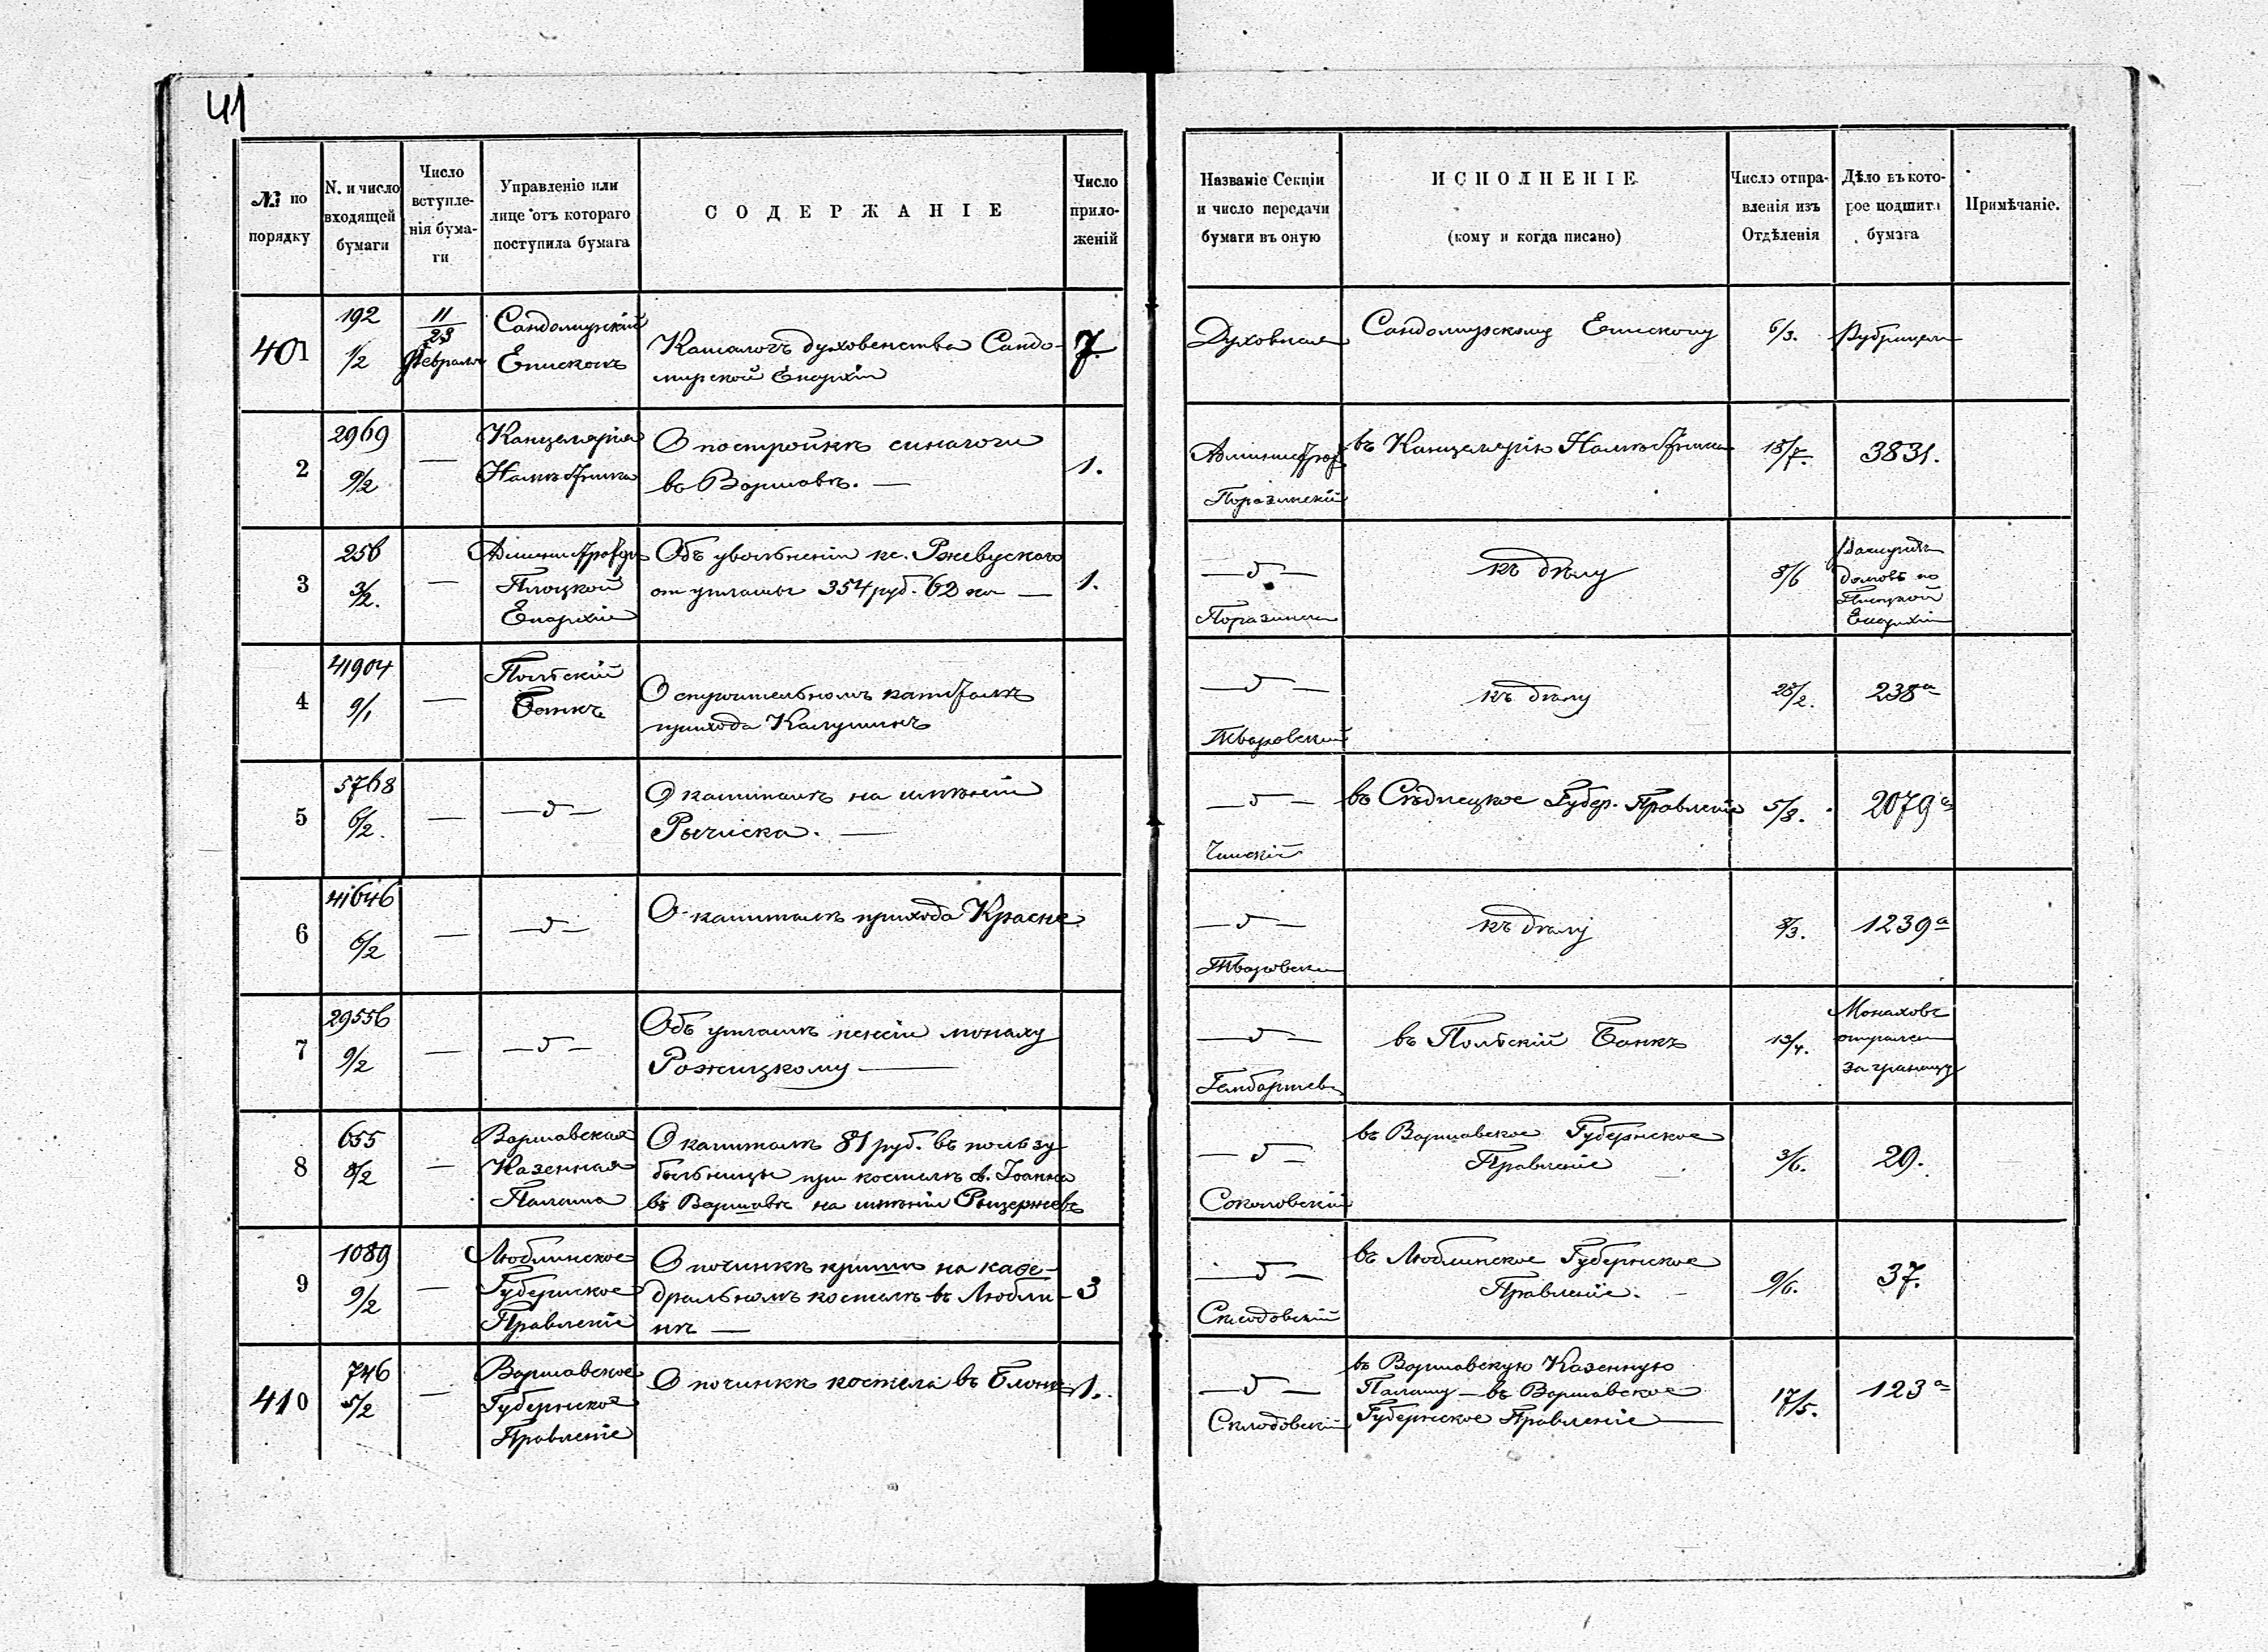 41
№ по порядку
N. и число входящей бумаги
Число вступле-нія бума-ги
Управленіе или лице отъ котораго поступила бумага
СОДЕРЖАНІЕ
Число прило-женій
Названіе Секціи и число передачи бумаги въ оную
ИСПОЛНЕНІЕ
(кому и когда писано)
Число отпра-вленія изъ Отдѣленія
Дѣло въ кото-рое подшита бумага
Примѣчаніе.
401
192
1/2
11/23
Февраля
Сандомирскій
Епископъ
Каталогъ духовенства Сандо-
мирской Епархіи
7
Духовная
Сандомирскому Епископу
6/3.
Рубрицели
2
2969
9/2
—
Канцелярія
Намѣстника
О постройкѣ синагоги
въ Варшавѣ. —
1.
Поразинскій
въ Канцелярію Намѣстника
3831.
3
256
3/2.
—
Администраторъ
Плоцкой
Епархіи
Объ увольненіи кс. Ржевускаго
от уплаты 354 руб. 62 ко —
1.
къ дѣлу
8/6
домовъ по
Плоцкой
Епархіи
4
41904
9/1
—
Польскій
Банкъ
О строительномъ капиталѣ
прихода Калушинъ
къ дѣлу
28/2.
238а
5
5768
6/2.
—
О капиталѣ на имѣніи
Рычиска. —
въ Сѣдлецкое Губер. Правленіе
5/8.
2079а
6
41646
6/2
—
О капиталѣ прихода Красне.
къ дѣлу
8/3.
1239а
7
29556
9/2
—
Объ уплатѣ пенсіи монаху
Рожицкому —
въ Польскій Банкъ
13/4.
Монаховъ
за границу
8
655
8/2
—
Варшавская
Казенная
Палата
О капиталѣ 81 руб. въ пользу
больницы при костелѣ св. Іоанна
въ Варшавѣ на имѣніи
Соколовскій
въ Варшавское Губернское
Правленіе
3/6.
29.
9
1089
9/2
—
Люблинское
Губернское
Правленіе
О починкѣ крыши на каѳе-
дральномъ костелѣ въ Любли-
нѣ —
3
въ Люблинское Губернское
Правленіе. —
9/6.
37.
410
746
5/2
—
Варшавское
Губернское
Правленіе
О починкѣ костела въ Блоне
1.
Склодовскій
въ Варшавскую Казенную
Палату — въ Варшавское
Губернское Правленіе —
17/5.
123а